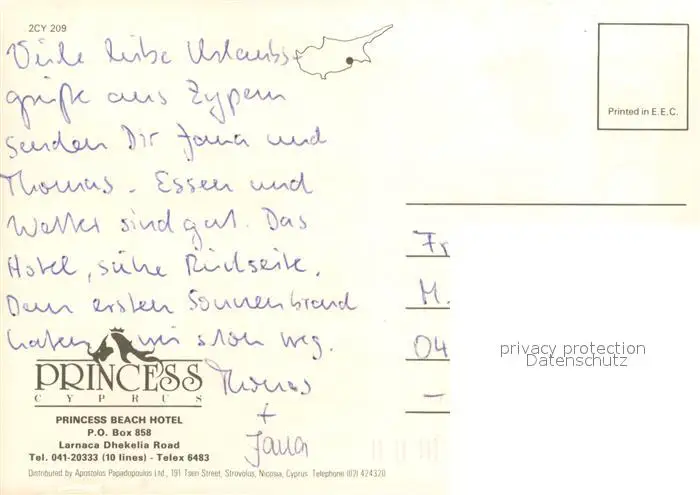 2CY 209
Viele liebe Urlaubs-
grüße aus Zypern
senden Dir Jana und
Thomas. Essen und
Wetter sind gut. Das
Hotel, siehe Rückseite.
Den ersten Sonnenbrand
haben wir schon weg.
Thomas
+
Jana
PRINCESS
CYPRUS
PRINCESS BEACH HOTEL
P.O. Box 858
Larnaca Dhekelia Road
Tel. 041-20333 (10 lines) - Telex 6483
Distributed by Apostolos Papadopoulos Ltd., 191 Tseri Street, Strovolos, Nicosia, Cyprus Telephone (02) 424320
Printed in E.E.C.
Fr
M.
04
–
privacy protection
Datenschutz